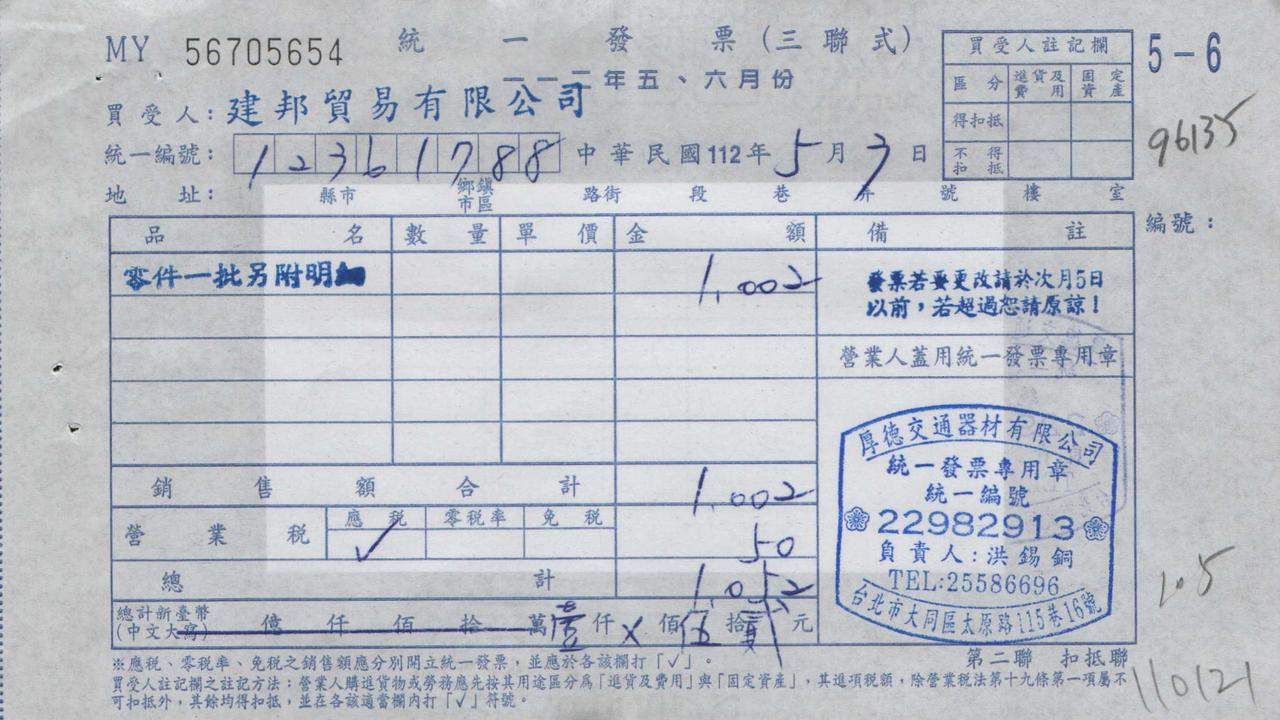 MY 56705654 統一發票(三聯式)
一一二年五、六月份
買受人註記欄
區分 進貨及費用 固定資產
得扣抵
不得扣抵
5-6
96135
買受人:建邦貿易有限公司
統一編號:12361788 中華民國112年5月3日
地址: 縣市 鄉鎮市區 路街 段 巷 弄 號 樓 室
編號:
品名 數量 單價 金額 備註
零件一批另附明細 1,002
發票若要更改請於次月5日
以前,若超過恕請原諒!
營業人蓋用統一發票專用章
銷售額合計 1,002
營業稅 應稅 零稅率 免稅
✓ 50
總計 1,052
總計新臺幣
(中文大寫) 億 仟 佰 拾 萬 壹 仟 X 佰 伍 拾 貳 元
厚德交通器材有限公司
統一發票專用章
統一編號
22982913
負責人:洪錫銅
TEL:25586696
台北市大同區太原路115巷16號
105
第二聯 扣抵聯
※應稅、零稅率、免稅之銷售額應分別開立統一發票,並應於各該欄打「✓」。
買受人註記欄之註記方法:營業人購進貨物或勞務應先按其用途區分為「進貨及費用」與「固定資產」,其進項稅額,除營業稅法第十九條第一項屬不
可扣抵外,其餘均得扣抵,並在各該適當欄內打「✓」符號。
110121